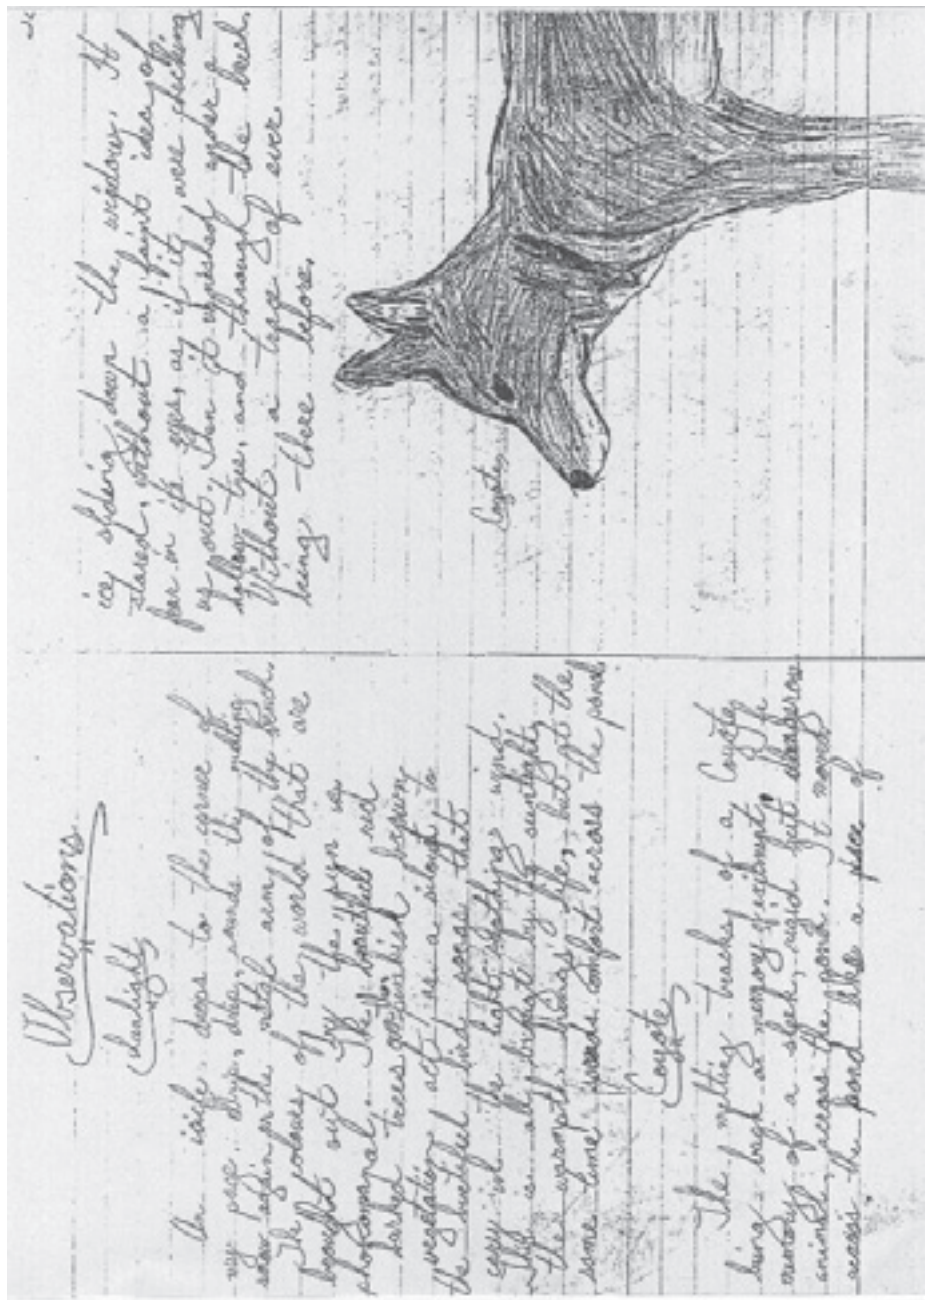 Observations
Sunlight
An icicle drops to the corner of
my page. drip, drip, sounds the melting
snow begin on the petal arms of the bench.
The colours of the world that are
brought out by the sun is
phenomenal. The boulders red
barked trees over the brown
vegetation act as a silent to
the beautiful bird songs that
carry in the light rushing wind.
This is all brought by the sunlight,
the warmth brings life, but at the
same time sends comfort across the pond
Coyote
The melting tracks of a Coyote
bring back a memory of excitement, a
memory of a sleek, rigid but dangerous
animal, across the pond. It moved
across the pond like a piece of
ice sliding down the window. It
stared, without a faint idea of
fear in its eyes, as if it were checking
us out. Then it vanished under the
hollow tree, and through the bush.
Without a trace of ever
being there before.
Coyote